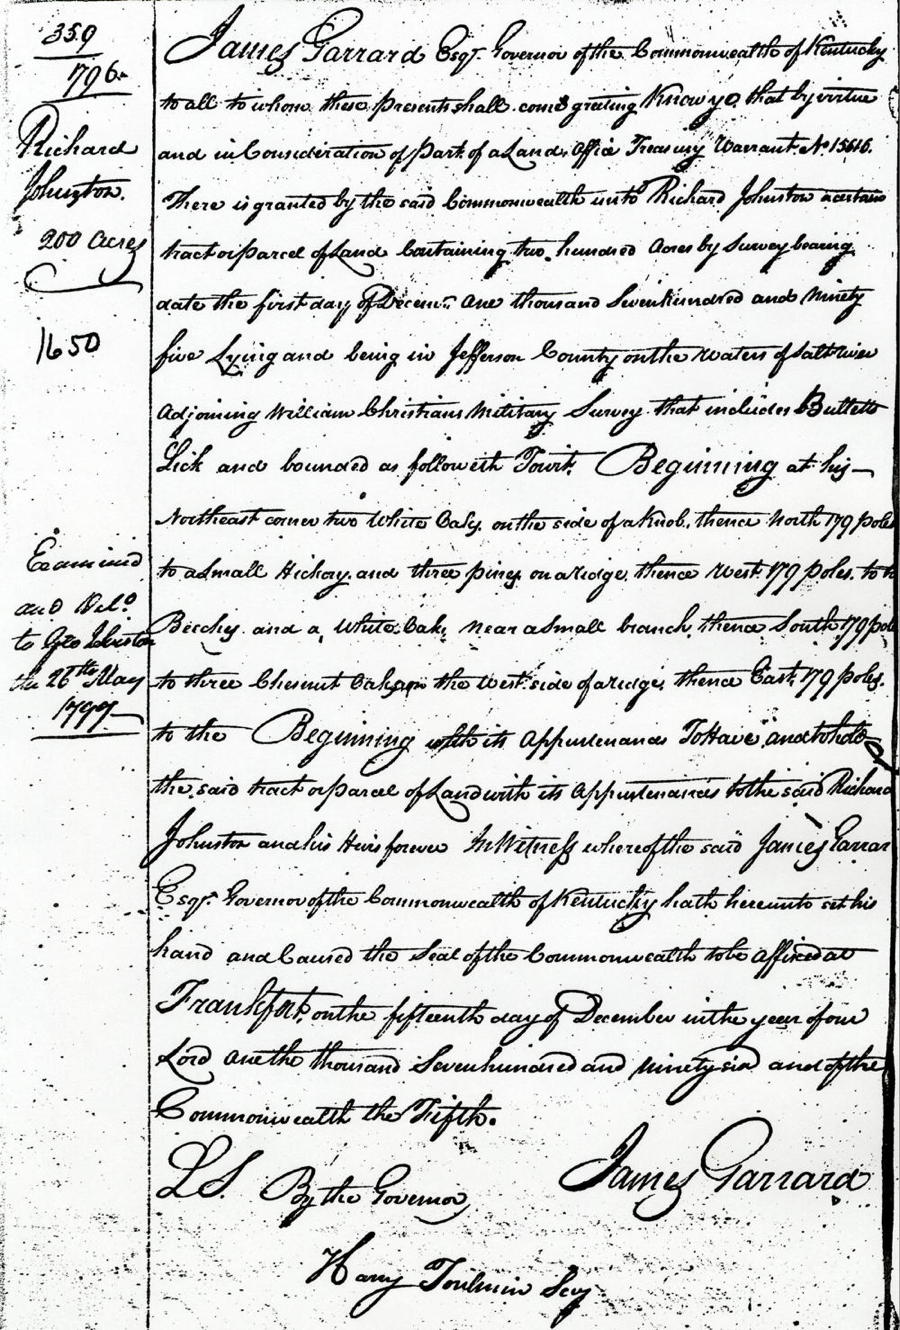 359
1796
Richard
Johnston.
200 Acres
1650
Examined
and Del.d
to Geo Johnston
the 26th May
1797
James Garrard Esqr. Governor of the Commonwealth of Kentucky
to all to whom these presents shall come greeting Know ye that by virtue
and in Consideration of part of a Land Office Treasury Warrant No. 15616.
There is granted by the said Commonwealth unto Richard Johnston a certain
tract or parcel of Land Containing two hundred Acres by Survey bearing
date the first day of Decemr. one thousand Seven hundred and Ninety
five Lying and being in Jefferson County on the waters of Salt river
Adjoining William Christians Military Survey that includes Bulletts
Lick and bounded as followeth Towit. Beginning at his
Northeast corner two White Oaks, on the side of a Knob, thence North 179 poles
to a small Hickory and three pines on a ridge, thence West 179 poles to
Beechs and a White Oak, near a small branch, thence South 179
to three Chesnut Oaks on the West side of a ridge, thence East 179 poles.
to the Beginning with its Appurtenances To Have and to hold
the said tract or parcel of Land with its Appurtenances to the said Richard
Johnston and his Heirs forever In Witness whereof the said James Garrar
Esqr. Governor of the Commonwealth of Kentucky hath hereunto set his
hand and Caused the Seal of the Commonwealth to be affixed at
Frankfort, on the fifteenth day of December in the year of our
Lord one the thousand Seven hundred and ninety six and of the
Commonwealth the Fifth.
L S. By the Governor James Garrard
Harry Toulmin Secy